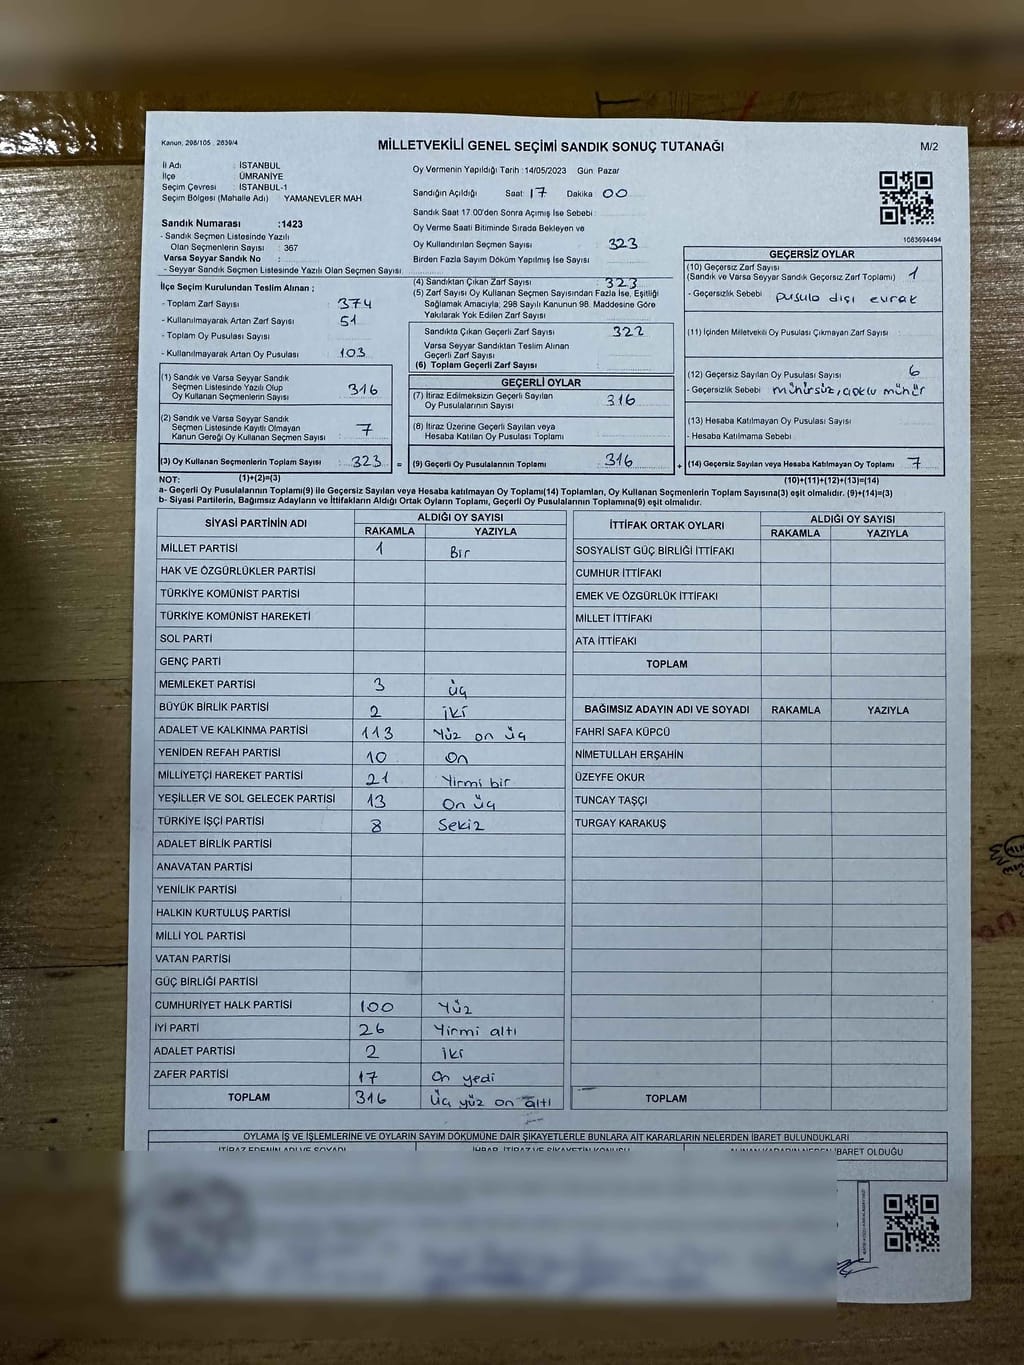 Kanun: 298/105 , 2839/4
MİLLETVEKİLİ GENEL SEÇİMİ SANDIK SONUÇ TUTANAĞI
M/2
İl Adı : İSTANBUL
İlçe : ÜMRANİYE
Seçim Çevresi : İSTANBUL-1
Seçim Bölgesi (Mahalle Adı) YAMANEVLER MAH
Sandık Numarası :1423
- Sandık Seçmen Listesinde Yazılı
Olan Seçmenlerin Sayısı : 367
Varsa Seyyar Sandık No :
- Seyyar Sandık Seçmen Listesinde Yazılı Olan Seçmen Sayısı:
Oy Vermenin Yapıldığı Tarih :14/05/2023 Gün Pazar
Sandığın Açıldığı Saat: 17 Dakika 00
Sandık Saat 17:00'den Sonra Açımış İse Sebebi :
Oy Verme Saati Bitiminde Sırada Bekleyen ve
Oy Kullandırılan Seçmen Sayısı : 323
Birden Fazla Sayım Döküm Yapılmış İse Sayısı :
1083694494
İlçe Seçim Kurulundan Teslim Alınan ;
- Toplam Zarf Sayısı : 374
- Kullanılmayarak Artan Zarf Sayısı : 51
- Toplam Oy Pusulası Sayısı :
- Kullanılmayarak Artan Oy Pusulası : 103
(1) Sandık ve Varsa Seyyar Sandık
Seçmen Listesinde Yazılı Olup
Oy Kullanan Seçmenlerin Sayısı : 316
(2) Sandık ve Varsa Seyyar Sandık
Seçmen Listesinde Kayıtlı Olmayan
Kanun Gereği Oy Kullanan Seçmen Sayısı : 7
(3) Oy Kullanan Seçmenlerin Toplam Sayısı : 323 =
(4) Sandıktan Çıkan Zarf Sayısı : 323
(5) Zarf Sayısı Oy Kullanan Seçmen Sayısından Fazla İse, Eşitliği
Sağlamak Amacıyla; 298 Sayılı Kanunun 98. Maddesine Göre
Yakılarak Yok Edilen Zarf Sayısı :
Sandıkta Çıkan Geçerli Zarf Sayısı : 322
Varsa Seyyar Sandıktan Teslim Alınan
Geçerli Zarf Sayısı :
(6) Toplam Geçerli Zarf Sayısı :
GEÇERLİ OYLAR
(7) İtiraz Edilmeksizin Geçerli Sayılan
Oy Pusulalarının Sayısı : 316
(8) İtiraz Üzerine Geçerli Sayılan veya
Hesaba Katılan Oy Pusulası Toplamı :
(9) Geçerli Oy Pusulalarının Toplamı : 316 +
GEÇERSİZ OYLAR
(10) Geçersiz Zarf Sayısı
(Sandık ve Varsa Seyyar Sandık Geçersiz Zarf Toplamı) : 1
- Geçersizlik Sebebi : pusula dışı evrak
(11) İçinden Milletvekili Oy Pusulası Çıkmayan Zarf Sayısı :
(12) Geçersiz Sayılan Oy Pusulası Sayısı : 6
- Geçersizlik Sebebi : mühürsüz, çoklu mühür
(13) Hesaba Katılmayan Oy Pusulası Sayısı :
- Hesaba Katılmama Sebebi :
(14) Geçersiz Sayılan veya Hesaba Katılmayan Oy Toplamı : 7
NOT: (1)+(2)=(3) (10)+(11)+(12)+(13)=(14)
a- Geçerli Oy Pusulalarının Toplamı(9) ile Geçersiz Sayılan veya Hesaba katılmayan Oy Toplamı(14) Toplamları, Oy Kullanan Seçmenlerin Toplam Sayısına(3) eşit olmalıdır. (9)+(14)=(3)
b- Siyasi Partilerin, Bağımsız Adayların ve İttifakların Aldığı Ortak Oyların Toplamı, Geçerli Oy Pusulalarının Toplamına(9) eşit olmalıdır.
SİYASİ PARTİNİN ADI ALDIĞI OY SAYISI
RAKAMLA YAZIYLA
MİLLET PARTİSİ 1 Bir
HAK VE ÖZGÜRLÜKLER PARTİSİ
TÜRKİYE KOMÜNİST PARTİSİ
TÜRKİYE KOMÜNİST HAREKETİ
SOL PARTİ
GENÇ PARTİ
MEMLEKET PARTİSİ 3 üç
BÜYÜK BİRLİK PARTİSİ 2 iki
ADALET VE KALKINMA PARTİSİ 113 Yüz on üç
YENİDEN REFAH PARTİSİ 10 On
MİLLİYETÇİ HAREKET PARTİSİ 21 Yirmi bir
YEŞİLLER VE SOL GELECEK PARTİSİ 13 On üç
TÜRKİYE İŞÇİ PARTİSİ 8 Sekiz
ADALET BİRLİK PARTİSİ
ANAVATAN PARTİSİ
YENİLİK PARTİSİ
HALKIN KURTULUŞ PARTİSİ
MİLLİ YOL PARTİSİ
VATAN PARTİSİ
GÜÇ BİRLİĞİ PARTİSİ
CUMHURİYET HALK PARTİSİ 100 Yüz
İYİ PARTİ 26 Yirmi altı
ADALET PARTİSİ 2 iki
ZAFER PARTİSİ 17 On yedi
TOPLAM 316 üç yüz on altı
İTTİFAK ORTAK OYLARI ALDIĞI OY SAYISI
RAKAMLA YAZIYLA
SOSYALİST GÜÇ BİRLİĞİ İTTİFAKI
CUMHUR İTTİFAKI
EMEK VE ÖZGÜRLÜK İTTİFAKI
MİLLET İTTİFAKI
ATA İTTİFAKI
TOPLAM
BAĞIMSIZ ADAYIN ADI VE SOYADI RAKAMLA YAZIYLA
FAHRİ SAFA KÜPCÜ
NİMETULLAH ERŞAHİN
ÜZEYFE OKUR
TUNCAY TAŞÇI
TURGAY KARAKUŞ
TOPLAM
OYLAMA İŞ VE İŞLEMLERİNE VE OYLARIN SAYIM DÖKÜMÜNE DAİR ŞİKAYETLERLE BUNLARA AİT KARARLARIN NELERDEN İBARET BULUNDUKLARI
İTİRAZ EDENİN ADI VE SOYADI İHBAR, İTİRAZ VE ŞİKAYETİN KONUSU İBARET OLDUĞU